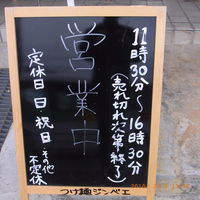 11時30分〜16時30分
(売れ切れ次第終了)
営業中
定休日 日 祝日 その他
不定休
つけ麺ジンベエ